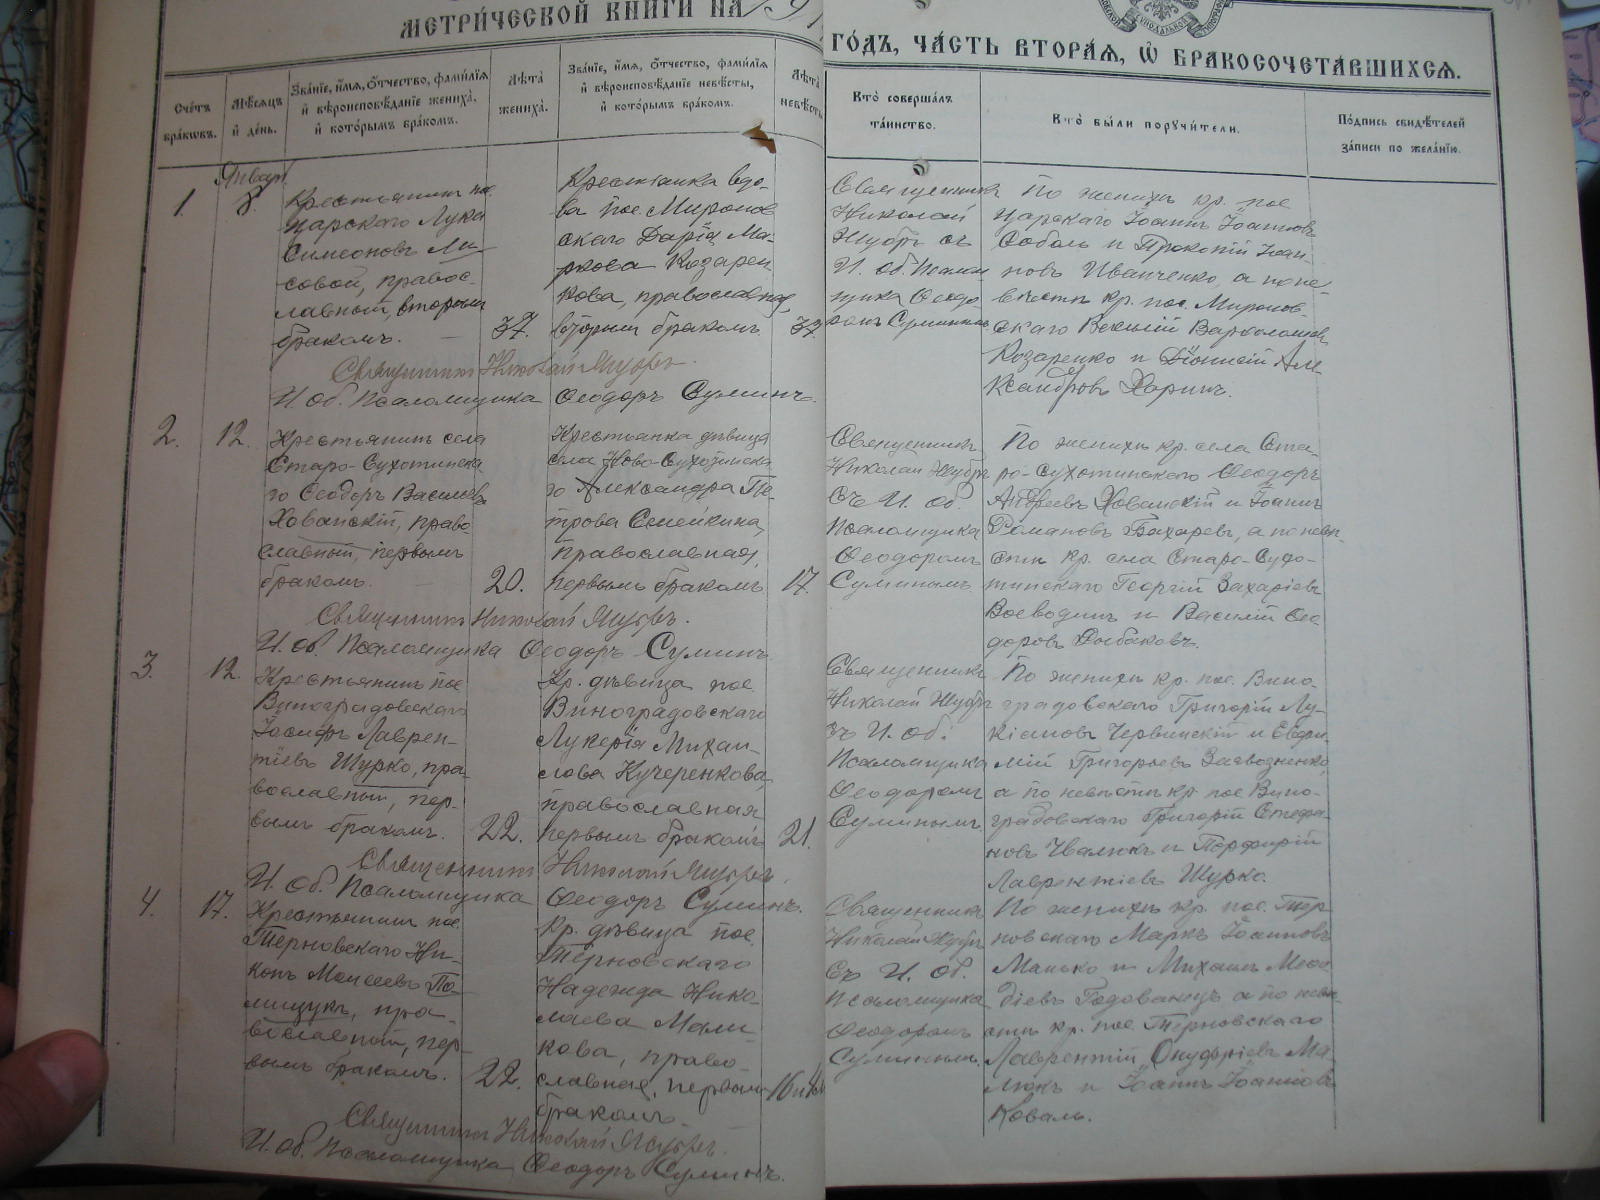 МЕТРИ́ЧЕСКОЙ КНИГИ НА 191
ГО́ДЪ, ЧА́СТЬ ВТОРА́Я, Ѡ҆ БРАКОСОЧЕТА́ВШИХСЯ.
Сче́тъ бра́ковъ.
Мѣ́сяцъ и҆ де́нь.
Зва́нїе, и҆́мя, ѻ҆́тчество, фами́лїя
и҆ вѣроисповѣ́данїе жениха̀,
и҆ кото́рымъ бра́комъ.
Лѣ́та жениха̀.
Зва́нїе, и҆́мя, ѻ҆́тчество, фами́лїя
и҆ вѣроисповѣ́данїе невѣ́сты,
и҆ кото́рымъ бра́комъ.
Лѣ́та невѣ́сты
Кто̀ соверша́лъ
та́инство.
Кто̀ бы́ли поручи́тели.
По́дпись свидѣ́телей
за́писи по жела́нїю.
Январь
1.
8.
Крестьянинъ пос.
Царскаго Лука
Симеоновъ Ли-
совой, правос-
лавный, вторымъ
бракомъ.
37.
Крестьянка вдо-
ва пос. Миронов
скаго Дарія Ма-
ркова Козарен
кова, православная,
вторым бракомъ.
37.
Священникъ
Николай
Шубръ съ
И. об. Псалом
щика Ѳеодо
ромъ Суминымъ
По женихѣ кр. пос.
Царскаго Іоаннъ Іоанновъ
Соболь и Прокопій Іоан-
новъ Иванченко, а по не-
вѣстѣ кр. пос. Миронов-
скаго Василій Варѳоломеевъ
Козаренко и Діонисій Але
ксандровъ Харинъ.
Священникъ Николай Шубръ.
И. об. Псаломщика Ѳеодоръ Суминъ.
2.
12.
Крестьянинъ села
Старо-Сухотинска
го Ѳеодоръ Васильев
Хованскій, право
славный, первымъ
бракомъ.
20.
Крестьянка дѣвица
села Ново-Сухотинска
го Александра Пе-
трова Семейкина,
православная,
первымъ бракомъ
17.
Священникъ
Николай Шубръ
съ И. об.
Псаломщика
Ѳеодоромъ
Суминымъ
По женихѣ кр. села Ста-
ро-Сухотинскаго Ѳеодоръ
Андреевъ Хованскій и Іоаннъ
Романовъ Бахаревъ, а по невѣ-
стѣ кр. села Старо-Сухо-
тинскаго Георгій Захаріевъ
Воеводинъ и Василій Ѳео
доровъ Рыбаковъ.
Священникъ Николай Шубръ.
И. об. Псаломщика Ѳеодоръ Суминъ
3.
12.
Крестьянинъ пос
Виноградовскаго
Іосифъ Лаврен-
тіевъ Шурко, пра-
вославный, пер-
вымъ бракомъ.
22.
Кр. дѣвица пос.
Виноградовскаго
Лукерія Михаи-
лова Кучеренкова,
православная
первымъ бракомъ
21.
Священникъ
Николай Шубръ
съ И. об.
Псаломщика
Ѳеодоромъ
Суминымъ
По женихѣ кр. пос. Вино-
градовскаго Григорій Лу-
кіановъ Червинскій и Евѳи-
мій Григорьевъ Завозненко,
а по невѣстѣ кр. пос Вино-
градовскаго Григорій Стефа-
новъ Чвалюкъ и Порфирій
Лаврентіевъ Шурко.
Священникъ Николай Шубръ.
И. об. Псаломщика Ѳеодоръ Суминъ.
4.
17.
Крестьянинъ пос.
Терновскаго Ни-
конъ Моисеевъ По-
лищукъ, пра-
вославный, пер-
вымъ бракомъ.
22.
Кр. дѣвица пос.
Терновскаго
Надежда Нико-
лаева Мали
кова, право-
славная, первымъ
бракомъ
16
Священникъ
Николай Шубръ
съ И. об.
Псаломщика
Ѳеодоромъ
Суминымъ.
По женихѣ кр. пос. Тер-
новскаго Маркъ Іоанновъ
Манько и Михаилъ Меѳо
діевъ Годованецъ а по невѣ-
стѣ кр. пос. Терновскаго
Лаврентій Онуфріевъ Ма-
люкъ и Іоаннъ Іоанновъ
Коваль.
Священникъ Николай Шубръ.
И. об. Псаломщика Ѳеодоръ Суминъ.